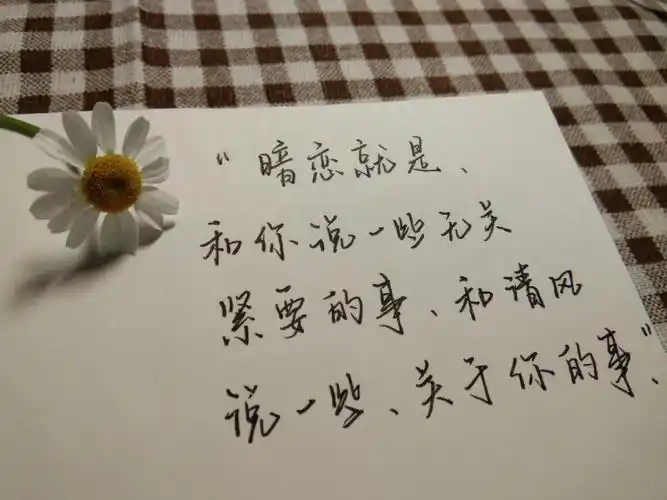 “暗恋就是、
和你说一些无关
紧要的事、和清风
说一些、关于你的事”、